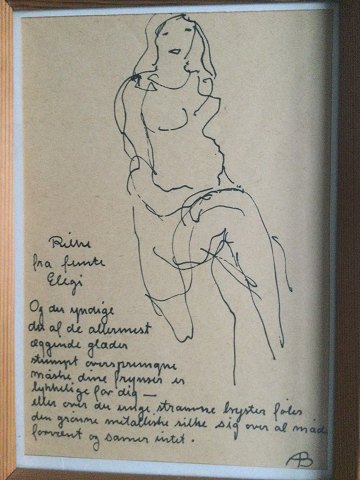 Rilke
fra femte
Elegi
Og du yndige
du af de allermest
æggende glæder
stumpt oversprungne
måske dine frynser er
lykkelige for dig –
eller over de unge stramme bryster føler
den grønne metalliske silke sig over al måde
forvænt og savner intet.
AB